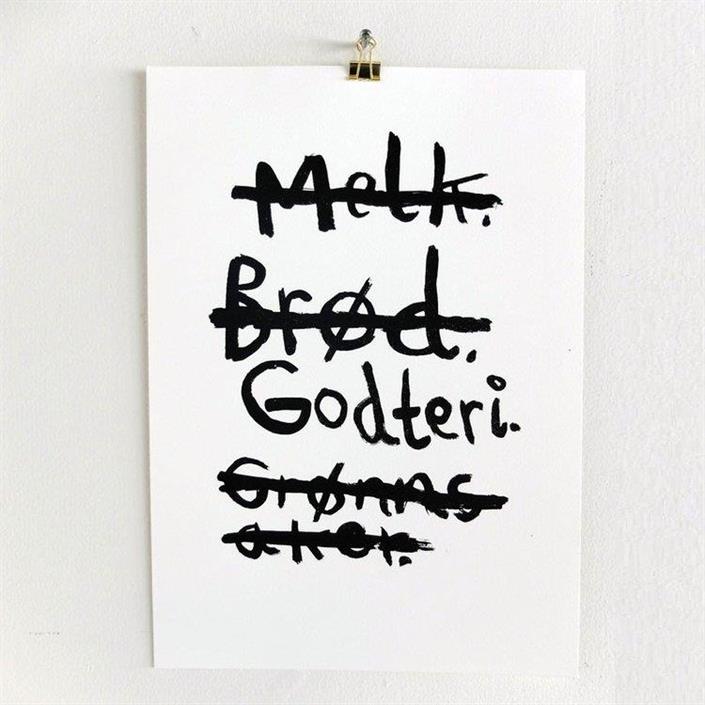 Melk.
Brød.
Godteri.
Grønns
aker.